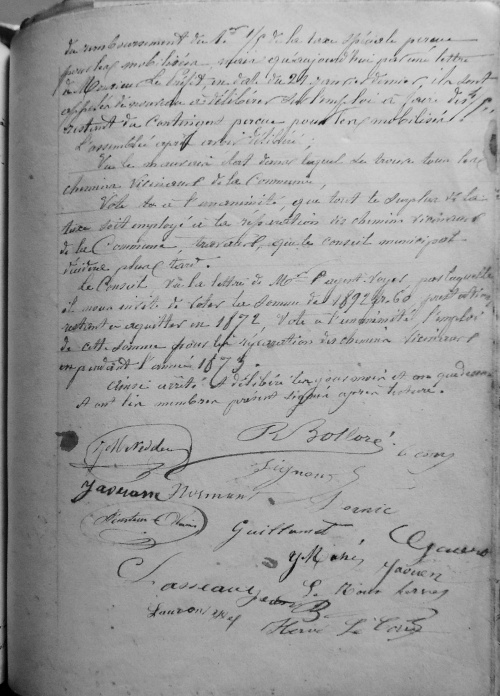 du remboursement du 1er 1/5 de la taxe spéciale perçue
pour les mobilisés, mais qu'aujourd'hui par une lettre
de Monsieur le Préfet, en date du 29 Janvier dernier, ils sont
appelés de nouveau à délibérer sur l'emploi à faire des 4/5
restant du Contingent perçue pour les mobilisés.
L'assemblée après avoir délibéré,
Vu le mauvais état dans lequel se trouve tous les
chemins vicinaux de la Commune,
Vote à l'unanimité que tout le surplus de la
taxe soit employé à la réparation des chemins vicinaux
de la Commune, travaux que le Conseil municipal
plus tard.
Le Conseil, Vu la lettre de Mr l'agent-Voyer, par laquelle
il nous invite de voter la somme de 1892f 60
restant à acquitter en 1872, Vote à l'unanimité l'emploi
de cette somme pour les réparations des chemins vicinaux
pendant l'année 1873.
Ainsi arrêté et délibéré les jour mois et an que dessus
et ont les membres présents signé après lecture.
R Bolloré
Normant
Guillamet
Y Mahé
Lasseau
Le Roux
Hervé Le Corre